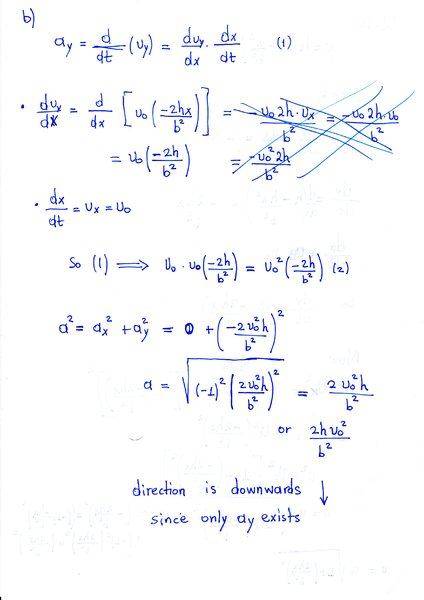 b)
a_y = d/dt (υ_y) = dυ_y/dx · dx/dt (1)
• dυ_y/dx = d/dx [υ_0 (-2hx/b²)] = -υ_0 2h·υ_x/b² = -υ_0 2h·υ_0/b²
= υ_0 (-2h/b²) = -υ_0² 2h/b²
• dx/dt = υ_x = υ_0
So (1) ⟹ υ_0 · υ_0 (-2h/b²) = υ_0² (-2h/b²) (2)
a² = a_x² + a_y² = 0 + (-2υ_0²h/b²)²
a = √((-1)² (2υ_0²h/b²)²) = 2υ_0²h/b²
or 2hυ_0²/b²
direction is downwards ↓
since only ay exists